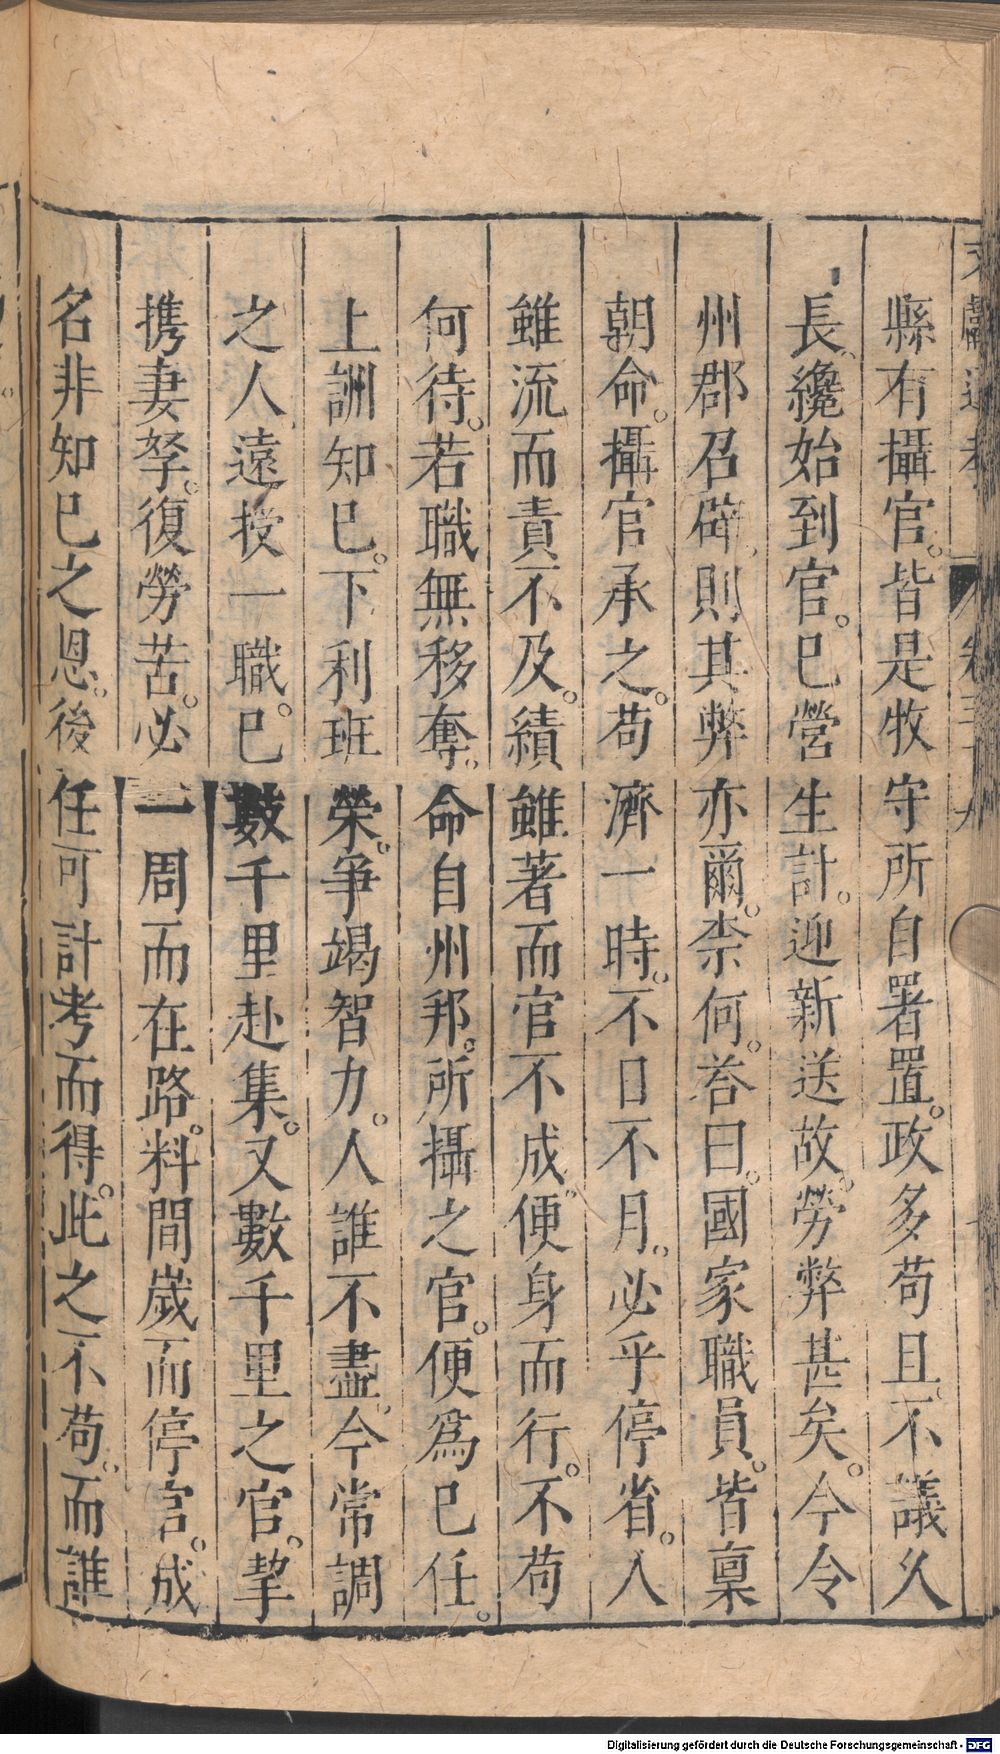 縣有攝官。皆是牧守所自署置。政多苟且、不議久
長、纔始到官。已營生計。迎新送故、勞弊甚矣。今令
州郡召辟、則其弊亦爾。柰何。荅曰。國家職員。皆稟
朝命。攝官承之。苟濟一時。不日不月。必乎停省。人
雖流而責不及。績雖著而官不成。便身而行。不苟
何待。若職無移奪。命自州邦。所攝之官。便爲已任。
上詶知已。下利班榮。爭竭智力。人誰不盡。今常調
之人、遠授一職。已數千里赴集。又數千里之官。挈
携妻孥。復勞苦。必一周而在路。料間歲而停官。成
名非知已之恩。後任可計考而得。此之不苟。而誰
Digitalisierung gefördert durch die Deutsche Forschungsgemeinschaft - DFG